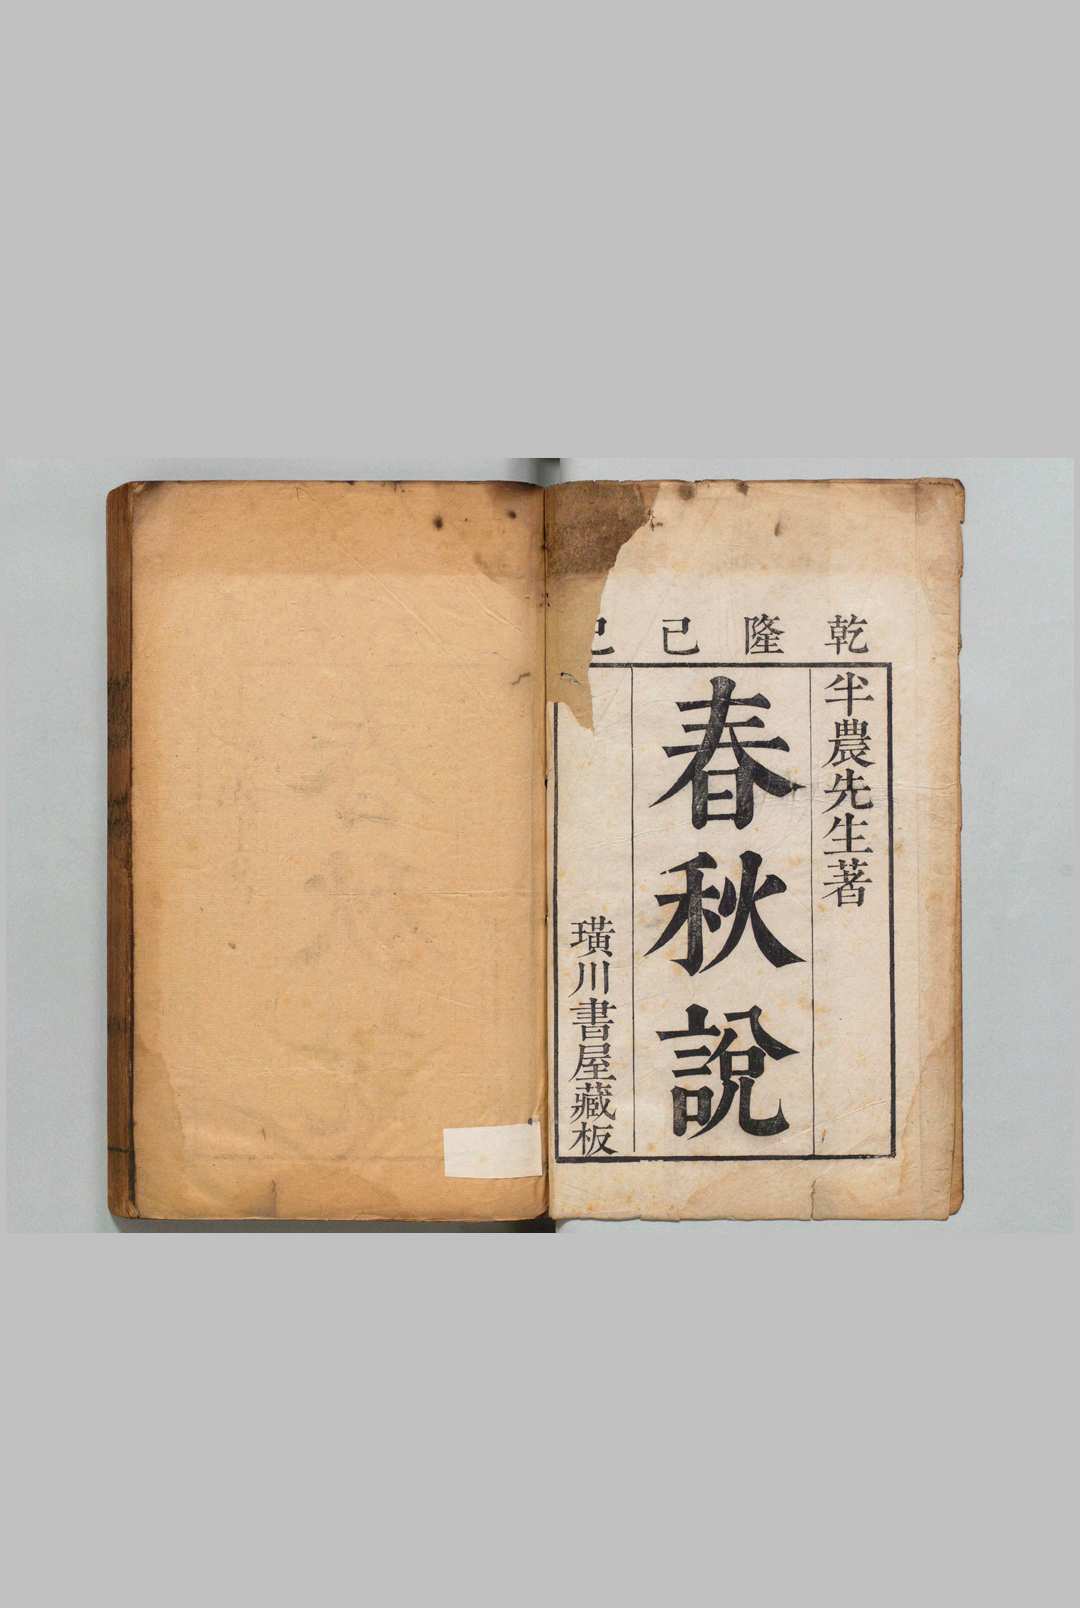 乾隆己巳
半農先生著
春秋說
璜川書屋藏板